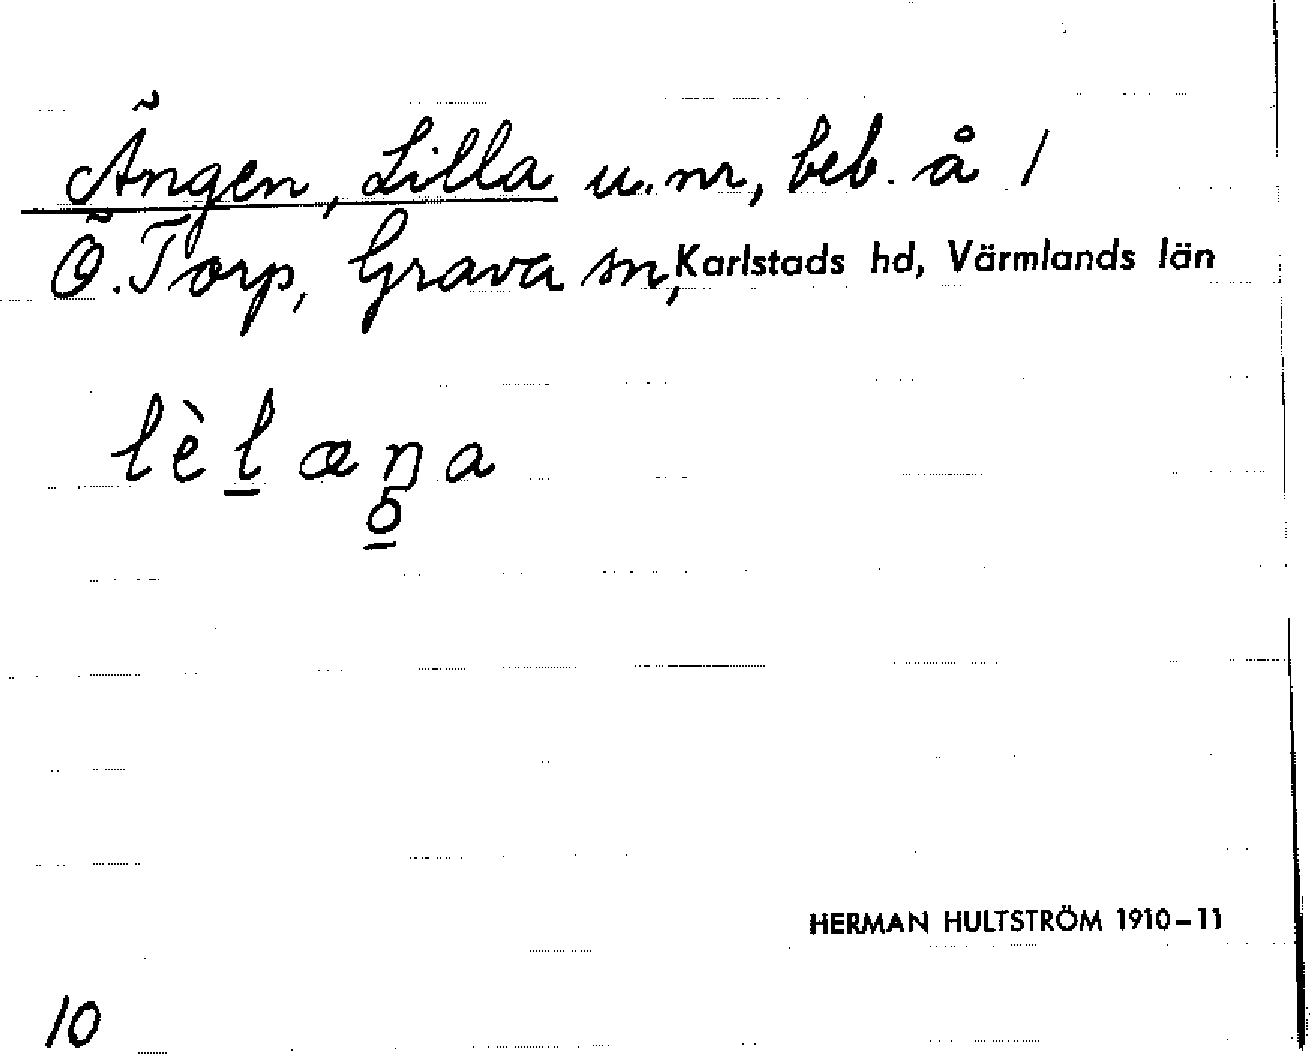 Ängen, Lilla u.nr, beb. å 1
Ö. Torp, Grava sn, Karlstads hd, Värmlands län
lèlæŋa
HERMAN HULTSTRÖM 1910–11
10